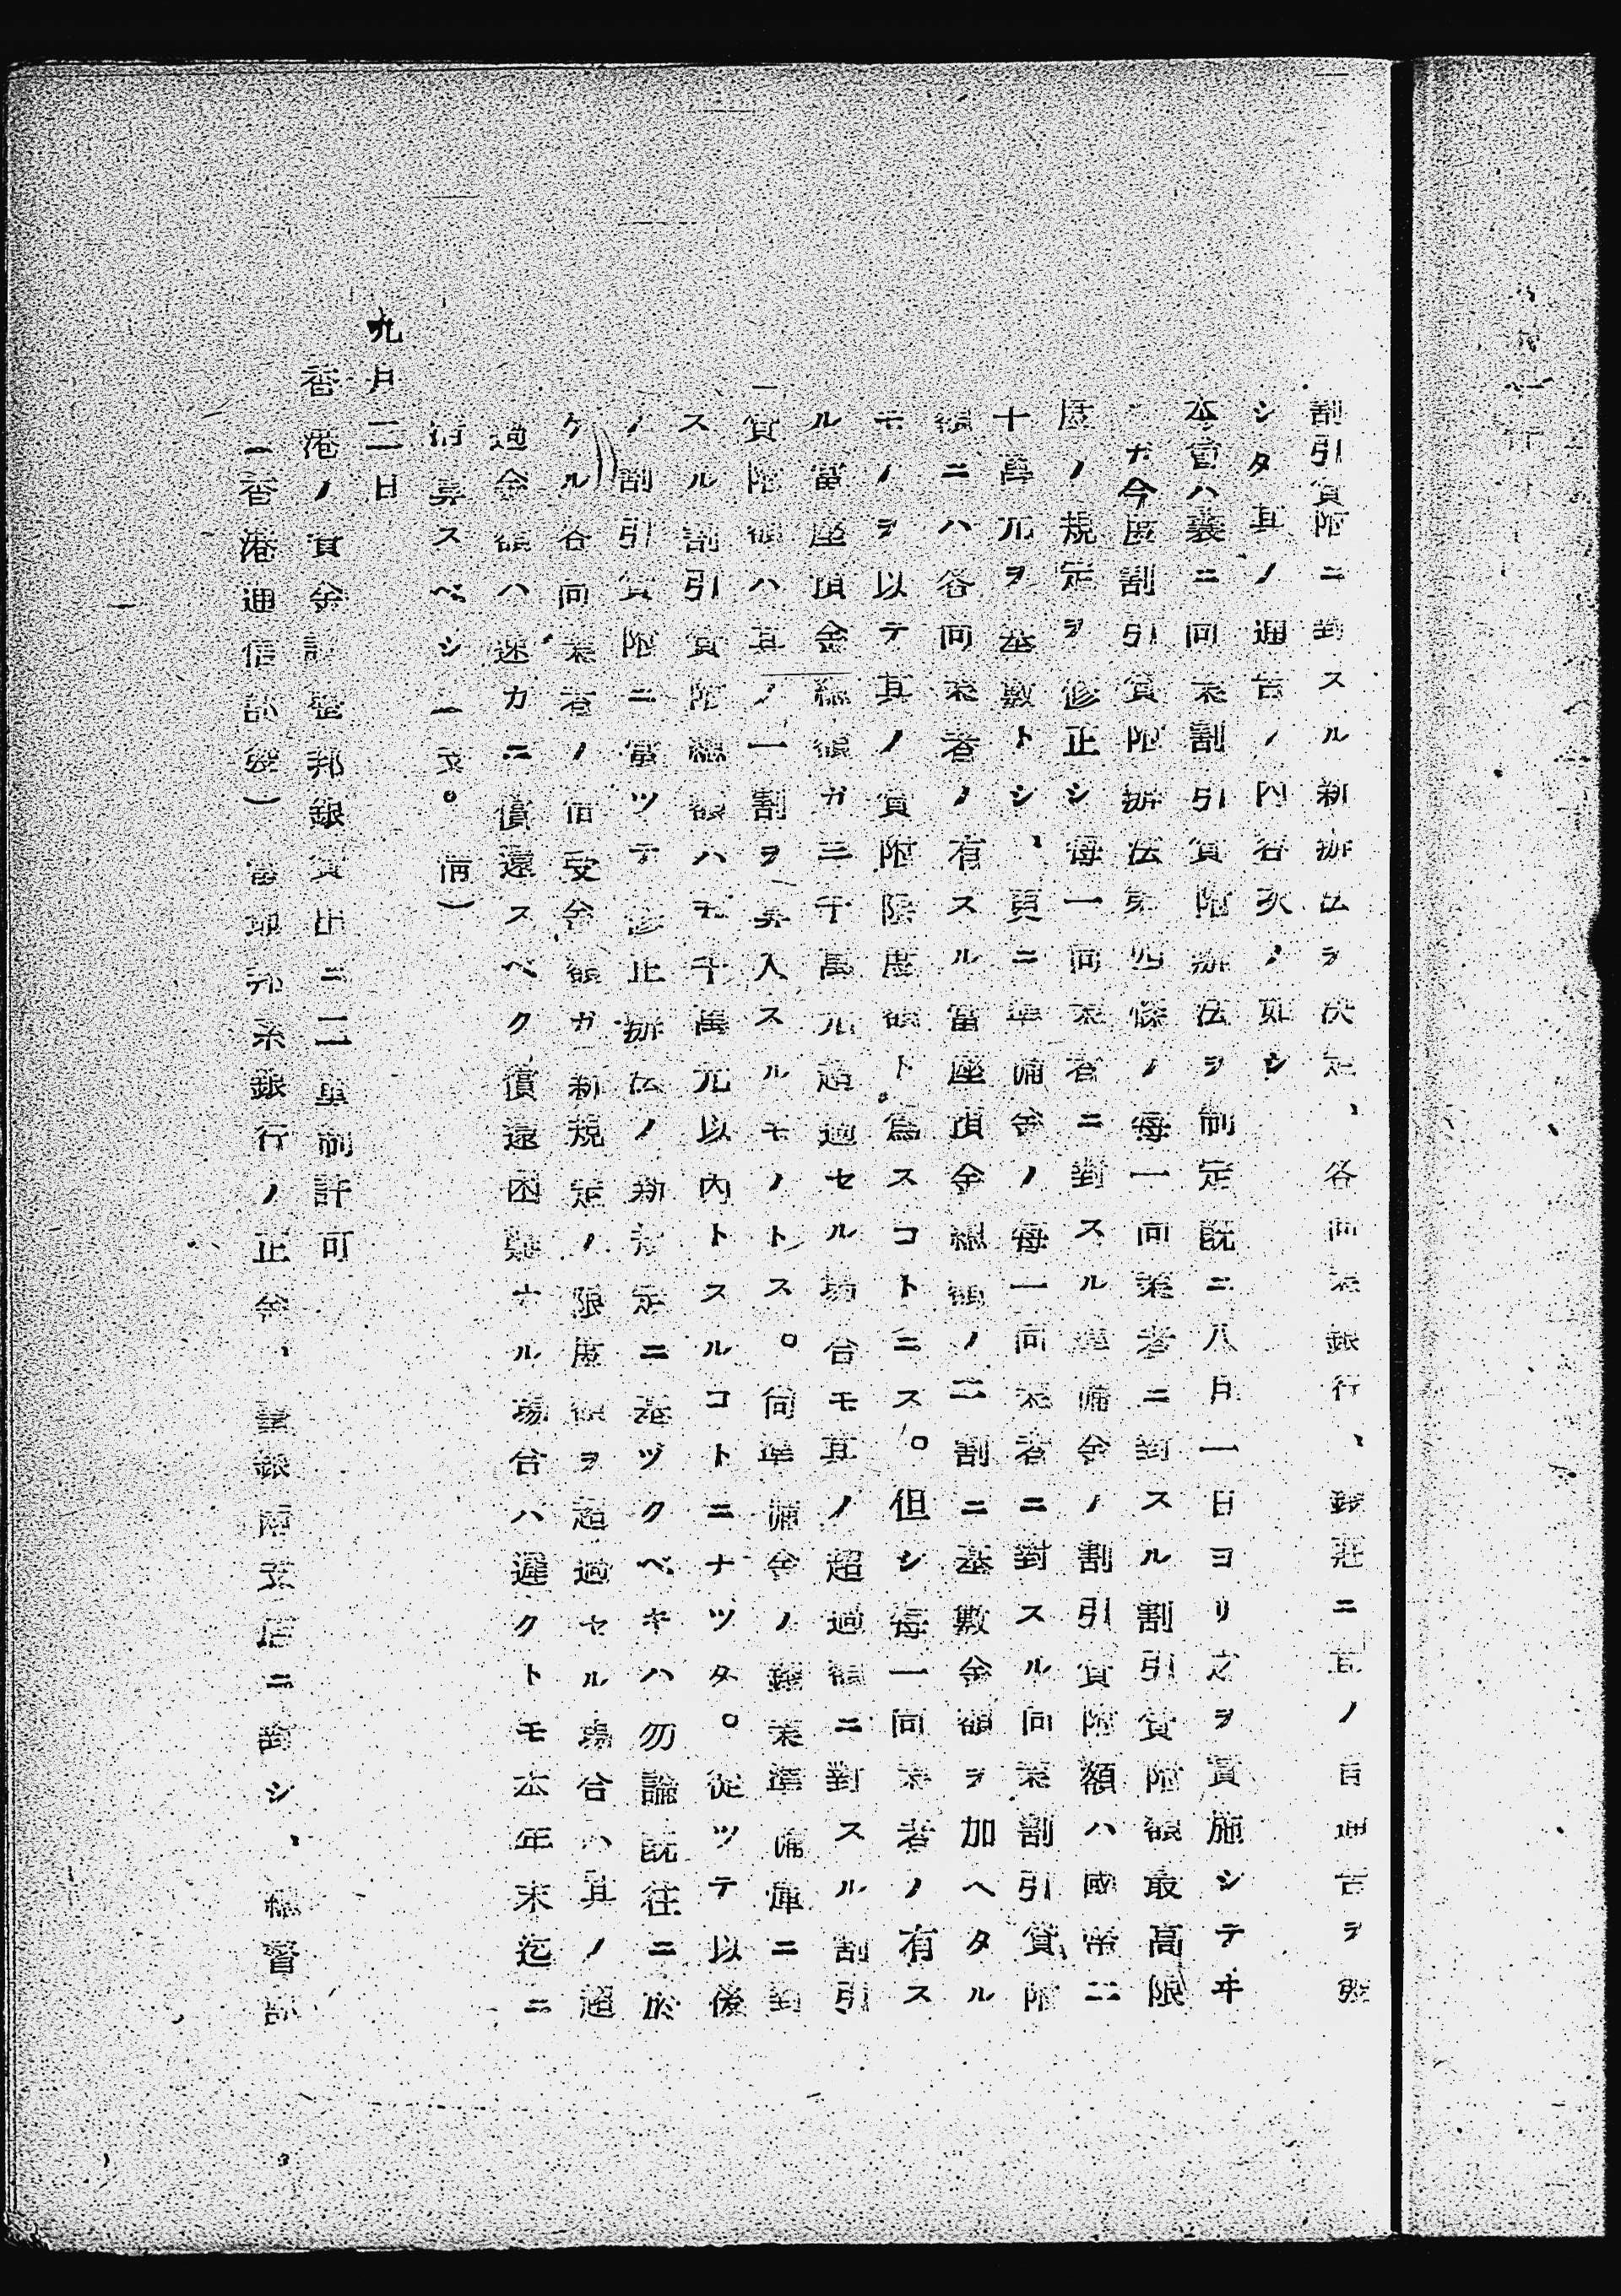 割引貸附ニ對スル新辦法ヲ決定、各同業銀行、錢莊ニ其ノ旨通告ヲ發
シタ其ノ通告ノ內容次ノ如シ
本會ハ裏ニ同業割引貸附辦法ヲ制定既ニ八月一日ヨリ之ヲ實施シテヰ
ガ今囘割引貸附辦法第四條ノ每一同業者ニ對スル割引貸附額最高限
度ノ規定ヲ修正シ每一同業者ニ對スル準備金ノ割引貸附額ハ國幣二
十萬元ヲ基數トシ、更ニ準備金ノ每一同業者ニ對スル同業割引貸附
額ニハ各同業者ノ有スル當座預金總額ノ二割ニ基數金額ヲ加ヘタル
モノヲ以テ其ノ貸附限度額ト爲スコトニス。但シ每一同業者ノ有ス
ル當座預金總額ガ三千萬元超過セル場合モ其ノ超過額ニ對スル割引
貸附額ハ其ノ一割ヲ算入スルモノトス。尙準備金ノ錢業準備庫ニ對
スル割引貸附總額ハ千萬元以內トスルコトニナツタ。從ツテ以後
ノ割引貸附ニ當ツテ修正辦法ノ新規定ニ基ヅクベキハ勿論既往ニ於
ケル各同業者ノ借受金額ガ新規定ノ限度額ヲ超過セル場合ハ其ノ超
過金額ハ速カニ償還スベク償還困難ナル場合ハ遲クトモ本年末迄ニ
淸算スベシ
九月二日
香港ノ資金調整邦銀貸出ニ事前許可
(香港通信部發)當部邦系銀行ノ正金、臺銀兩支店ニ對シ、總督部